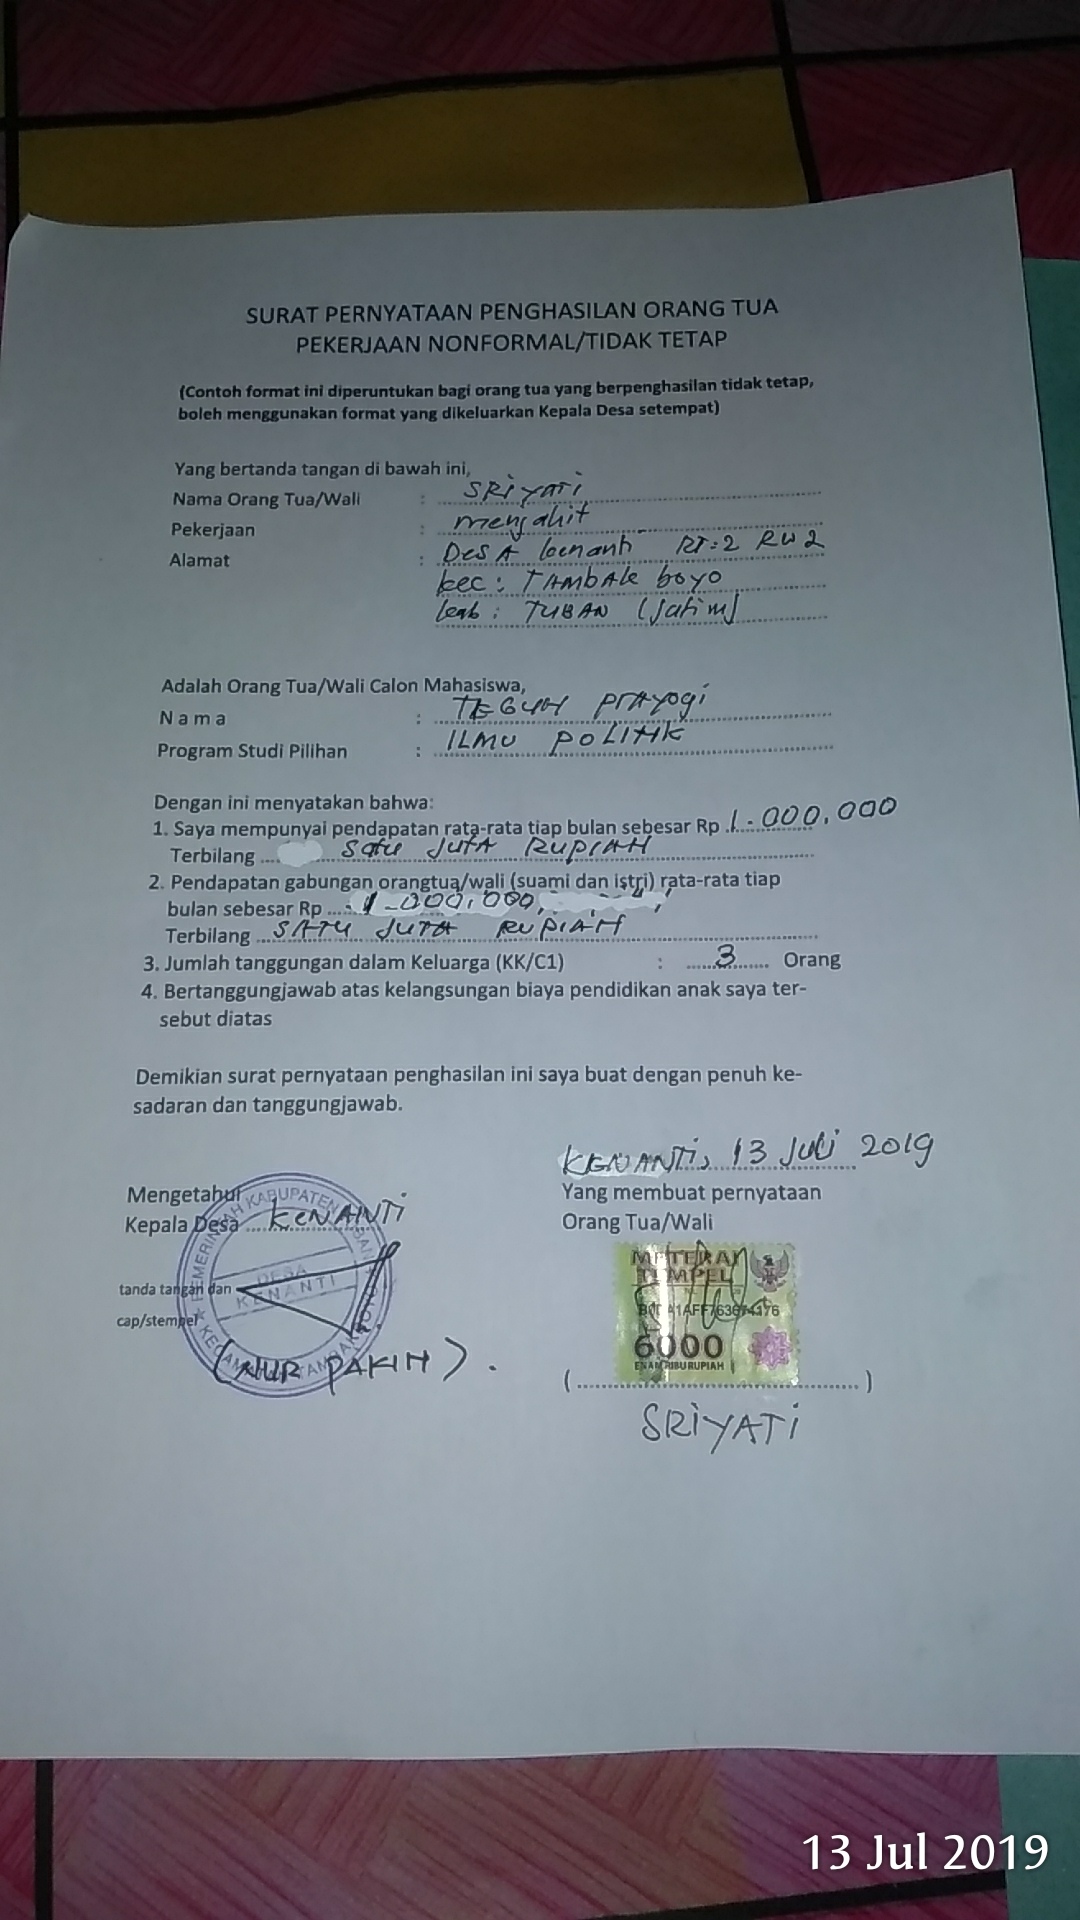 SURAT PERNYATAAN PENGHASILAN ORANG TUA
PEKERJAAN NONFORMAL/TIDAK TETAP
(Contoh format ini diperuntukan bagi orang tua yang berpenghasilan tidak tetap,
boleh menggunakan format yang dikeluarkan Kepala Desa setempat)
Yang bertanda tangan di bawah ini,
Nama Orang Tua/Wali : SRiyATi
Pekerjaan : menjahit
Alamat : DesA kenanti RT:2 RW 2
kec: TAMbAk boyo
kab: TUBAN (Jatim)
Adalah Orang Tua/Wali Calon Mahasiswa,
N a m a : TEGUH PrAyogi
Program Studi Pilihan : ILMU POLITIK
Dengan ini menyatakan bahwa:
1. Saya mempunyai pendapatan rata-rata tiap bulan sebesar Rp 1.000,000
Terbilang satu JUTA RUPIAH
2. Pendapatan gabungan orangtua/wali (suami dan istri) rata-rata tiap
bulan sebesar Rp 1.000,000,
Terbilang SATU JUTA RUPIAH
3. Jumlah tanggungan dalam Keluarga (KK/C1) : 3 Orang
4. Bertanggungjawab atas kelangsungan biaya pendidikan anak saya ter-
sebut diatas
Demikian surat pernyataan penghasilan ini saya buat dengan penuh ke-
sadaran dan tanggungjawab.
KENANTi, 13 Juli 2019
Mengetahui
Kepala Desa KENANTi
Yang membuat pernyataan
Orang Tua/Wali
PEMERINTAH KABUPATEN TUBAN
DESA
KENANTI
KECAMATAN TAMBAKBOYO
tanda tangan dan
cap/stempel
METERAI
TEMPEL
6000
ENAM RIBU RUPIAH
(NUR PAKIH).
(..........)
SRiYATi
13 Jul 2019